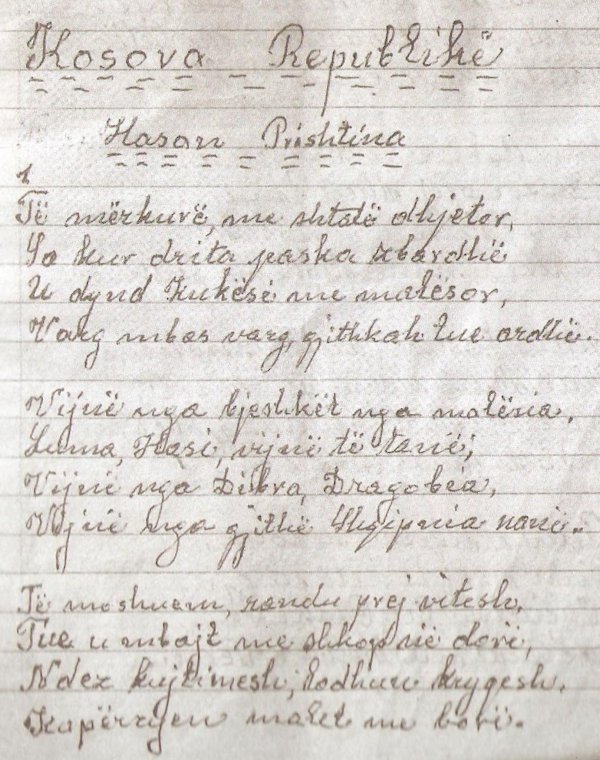 Kosova Republikë
Hasan Prishtina
1.
Të mërkurë, me shtatë dhjetor,
Sa kur drita paska zbardhë
U dynd Kukësi me malësor,
Varg mbas varg, gjithkah tue ardhë.
Vijnë nga bjeshkët nga malësia,
Luma, Hasi, vijnë të tanë;
Vijnë nga Dibra, Dragobia,
Vijnë nga gjithë Shqipnia nanë..
Të moshuem, randu prej vitesh,
Tue u mbajt me shkop në dorë,
Ndez kujtimesh, lodhun krygesh.
Kapërzyen malet me borë.